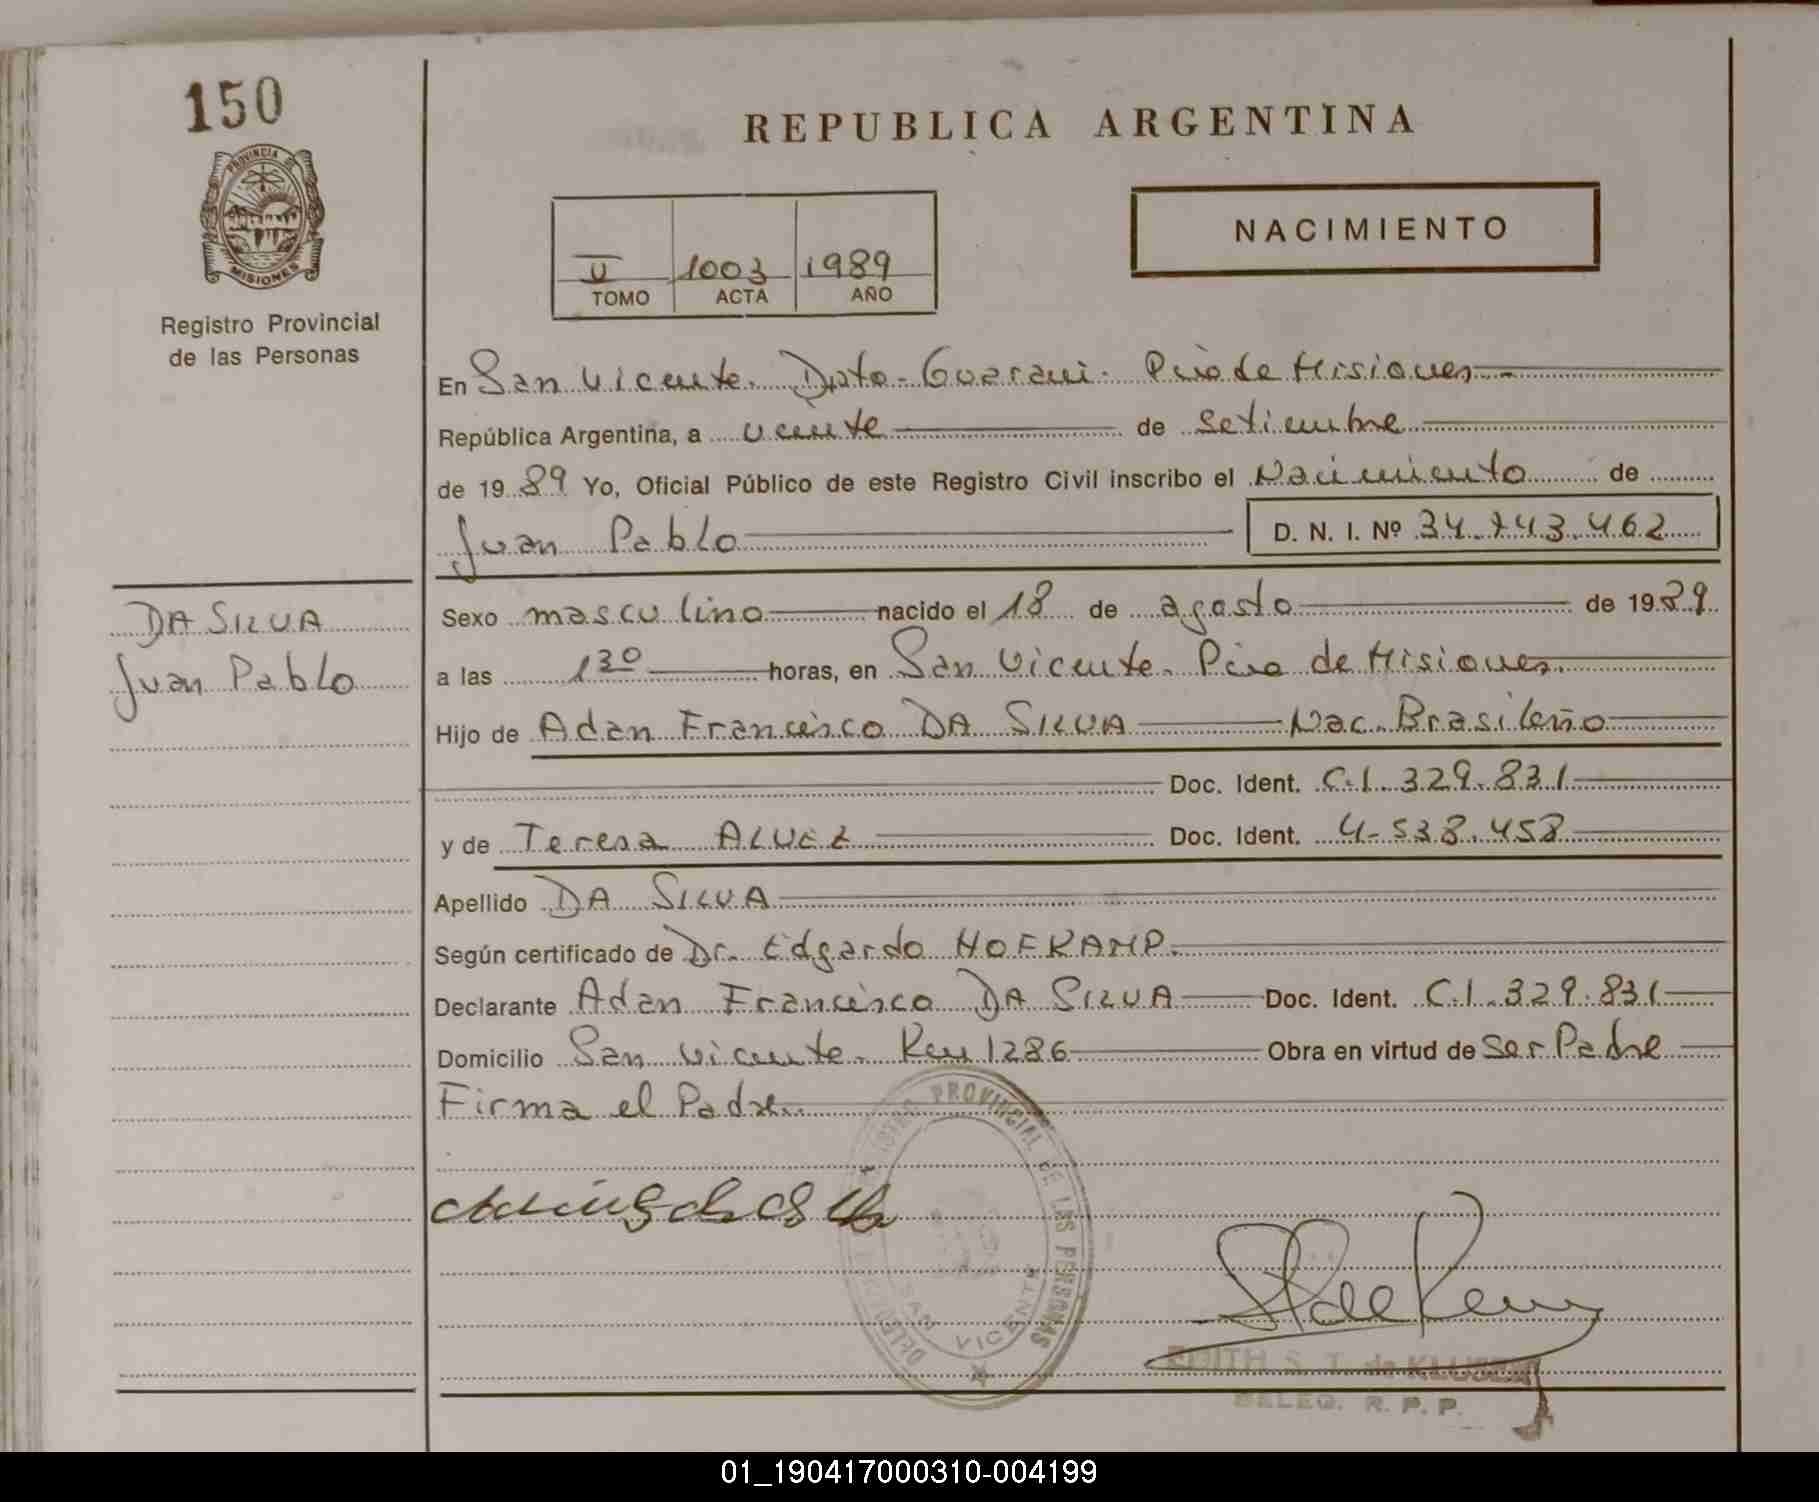 150
PROVINCIA DE
MISIONES
Registro Provincial
de las Personas
DA SILVA
Juan Pablo
REPUBLICA ARGENTINA
NACIMIENTO
V 1003 1989
TOMO ACTA AÑO
En San Vicente. Dpto- Guarani. Pcia de Misiones
República Argentina, a veinte de setiembre
de 1989 Yo, Oficial Público de este Registro Civil inscribo el Nacimiento de
Juan Pablo D. N. I. Nº 34.743.462
Sexo masculino nacido el 18 de agosto de 1989
a las 1 30 horas, en San Vicente. Pcia de Misiones.
Hijo de Adan Francisco DA SILVA Nac. Brasileño
Doc. Ident. C.I. 329.831
y de Teresa ALVEZ Doc. Ident. 4-538.458
Apellido DA SILVA
Según certificado de Dr. Edgardo HOFKAMP.
Declarante Adan Francisco DA SILVA Doc. Ident. C.I. 329.831
Domicilio San Vicente. Km 1286 Obra en virtud de Ser Padre
Firma el Padre.
PROVINCIAL DE LAS PERSONAS
SAN VICENTE
EDITH S. T. de
DELEG. R. P. P.
01_190417000310-004199